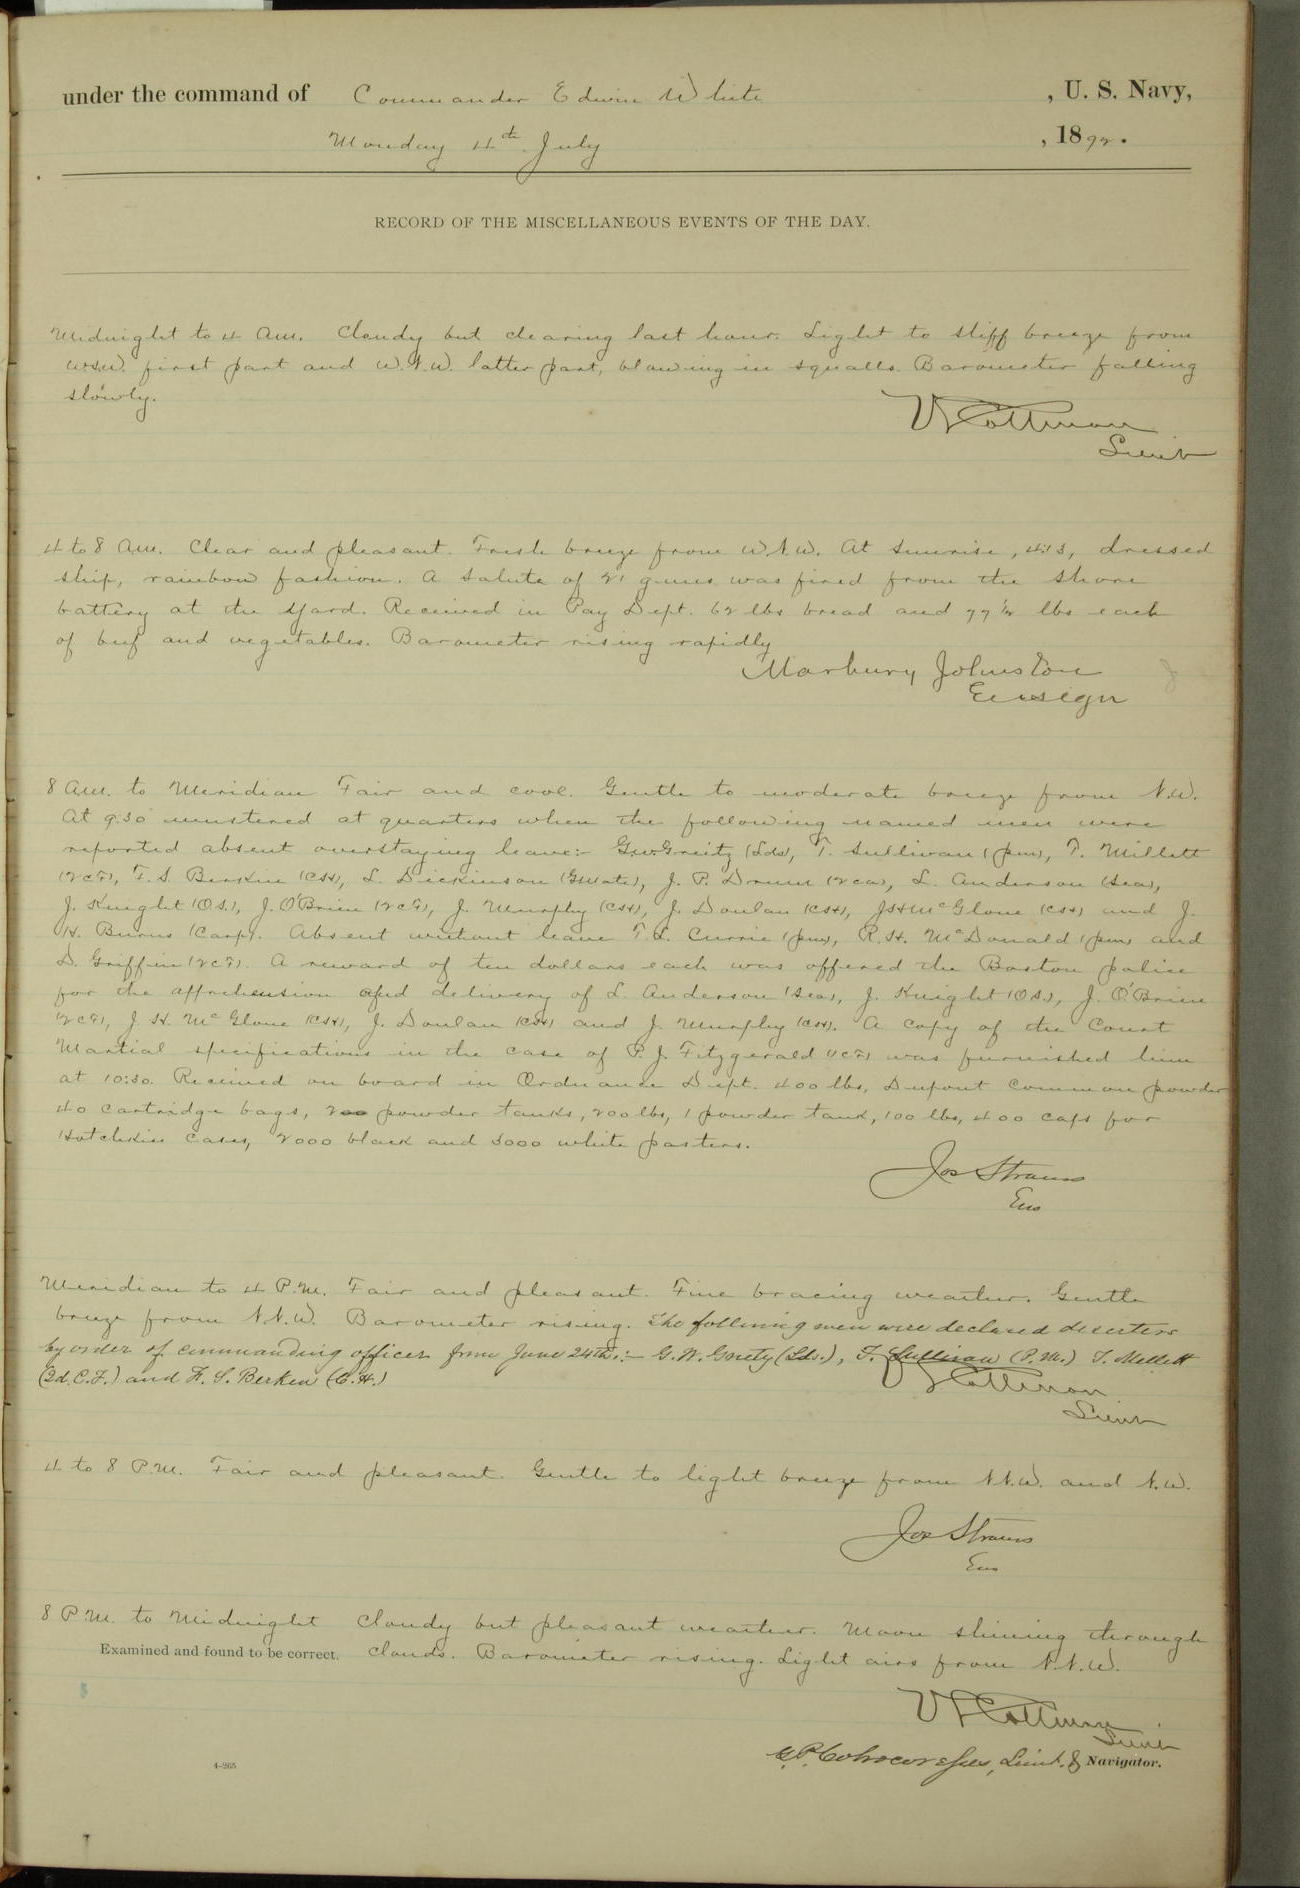 under the command of Commander Edwin White , U. S. Navy,
Monday 4th July , 1892.
RECORD OF THE MISCELLANEOUS EVENTS OF THE DAY.
Midnight to 4 A.M. Cloudy but clearing last hour. Light to stiff breeze from
W.S.W. first part and W.N.W. latter part, blowing in squalls. Barometer falling
slowly.
Lieut
4 to 8 A.M. Clear and pleasant. Fresh breeze from W.N.W. At sunrise, 4:13, dressed
ship, rainbow fashion. A salute of 21 guns was fired from the shore
battery at the Yard. Received in Pay Dept. 62 lbs bread and 77 1/2 lbs each
of beef and vegetables. Barometer rising rapidly
Marbury Johnston
Ensign
8 A.M. to Meridian Fair and cool. Gentle to moderate breeze from N.W.
At 9:30 mustered at quarters when the following named men were
reported absent overstaying leave:- G.W. (Lds), T. Sullivan (pm), T. Millett
(2CF), F. S. Berkin (CH), L. Dickinson (Gmate), J. P. Drum (2ca), L. Anderson (Sea),
J. Knight (O.S.), J. O'Brien (2CF), J. Murphy (CH), J. Donlan (CH), J.H. McGlone (CH) and J.
H. Burns (Carp). Absent without leave T.E. Currie (pm), R.H. McDonald (pm) and
D. Griffin (2CF). A reward of ten dollars each was offered the Boston police
for the apprehension and delivery of L. Anderson (Sea), J. Knight (O.S.), J. O'Brien
(2CF), J. H. McGlone (CH), J. Donlan (CH) and J. Murphy (CH). A copy of the Court
Martial specifications in the case of P. J. Fitzgerald (1CF) was furnished him
at 10:30. Received on board in Ordnance Dept. 400 lbs, Dupont Common powder
40 cartridge bags, 2 powder tanks, 200 lbs, 1 powder tank, 100 lbs, 400 caps for
Hotchkiss cases, 2000 black and 3000 white pasters.
Jos Strauss
Ens
Meridian to 4 P.M. Fair and pleasant. Fine bracing weather. Gentle
breeze from N.N.W. Barometer rising. The following men were declared deserters
by order of commanding officer from June 24th:- G. W. (Lds.), T. Sullivan (P.M.) T. Mellett
(2d. C.F.) and F. S. Berken (C.H.)
Lieut
4 to 8 P.M. Fair and pleasant. Gentle to light breeze from N.N.W. and N.W.
Jos Strauss
Ens
8 P.M. to Midnight Cloudy but pleasant weather. Moon shining through
Examined and found to be correct. clouds. Barometer rising. Light airs from N.N.W.
Lieut
4—265
G.P. Colvocoresses, Lieut. & Navigator.